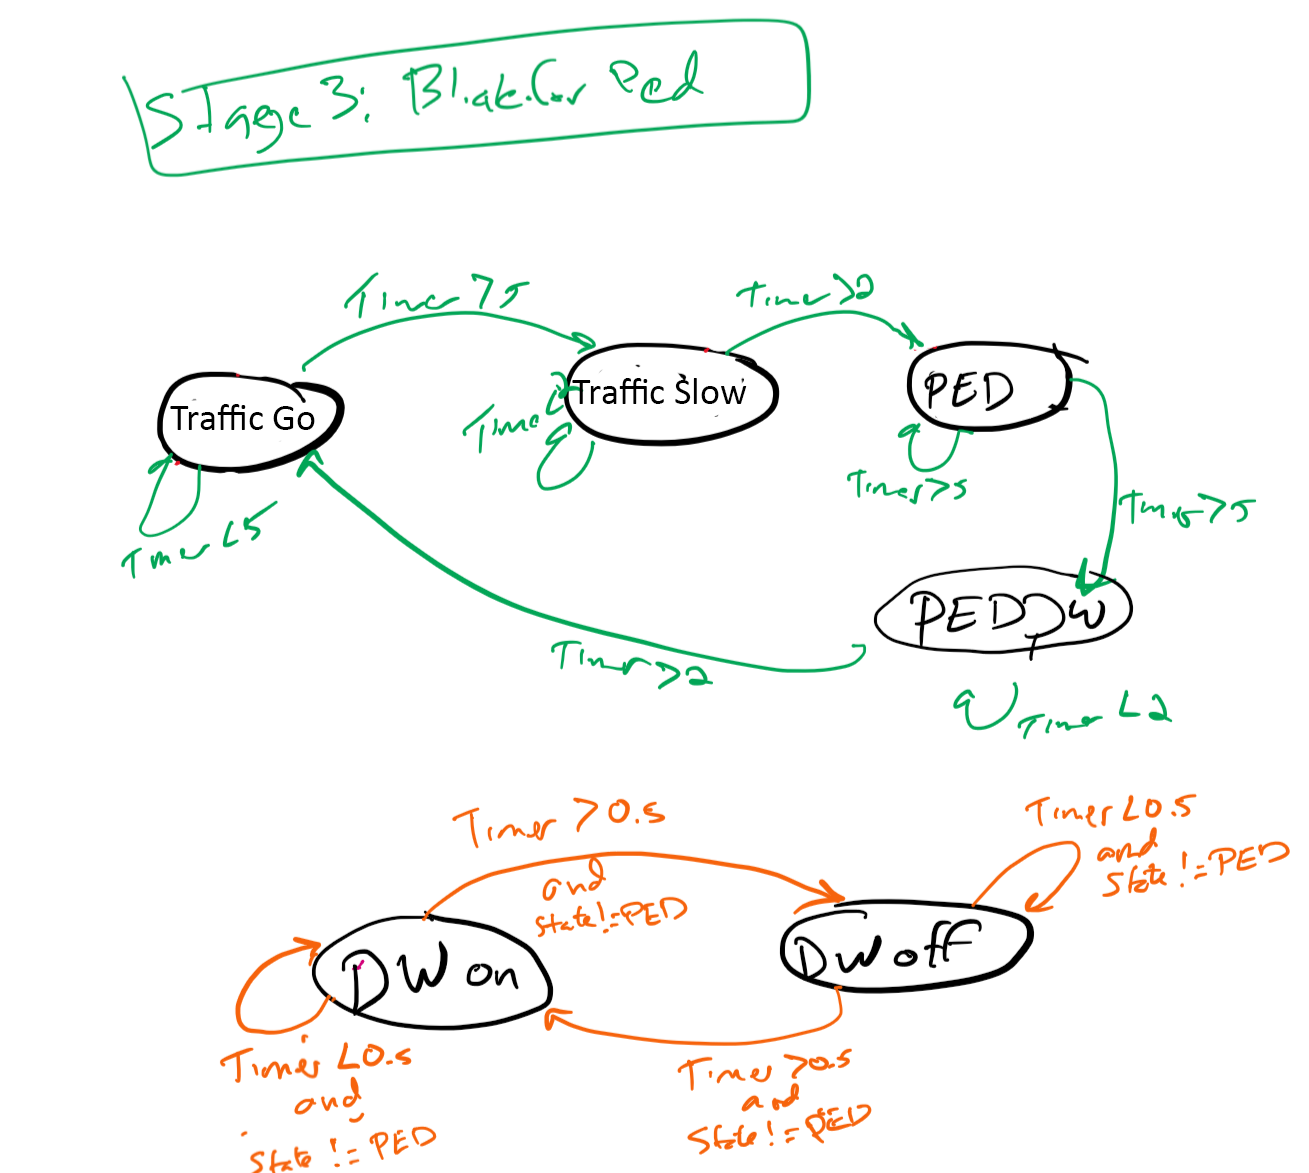 Stage 3: Blink for Ped
Timer >5
Timer >2
Traffic Go
Traffic Slow
PED
Timer <2
Timer >5
Timer >5
Timer <5
PED DW
Timer >2
Timer <2
Timer >0.5
and
State != PED
Timer <0.5
and
State != PED
DW on
DW off
Timer <0.5
and
State != PED
Timer >0.5
and
State != PED